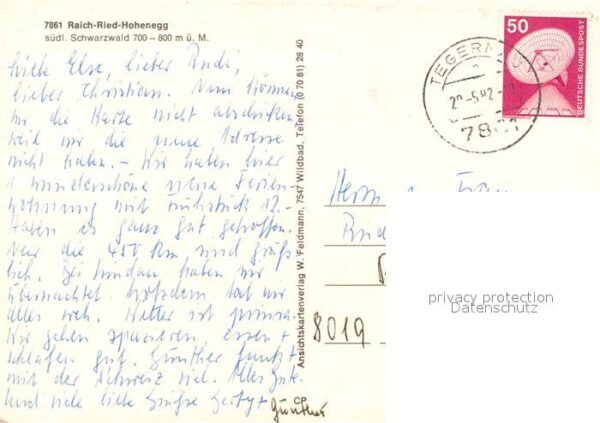 7861 Raich-Ried-Hohenegg
südl. Schwarzwald 700 – 800 m ü. M.
Liebe Else, lieber Rudi,
lieber Christian. Nun können
wir die Karte nicht abschicken
weil wir die neue Adresse
nicht haben. – Wir haben hier
1 wunderschöne neue Ferien-
wohnung mit Frühstück 12.-
Haben es ganz gut getroffen.
Nur die 450 km sind
lich. Bei Lindau haben wir
übernachtet. tat mir
alles weh. Wetter ist prima.
Wir gehen spazieren, essen +
schlafen gut. Günther funkt
mit der Schweiz viel. Alles Gute
und viele liebe Grüße +
Günther
Ansichtskartenverlag W. Feldmann, 7547 Wildbad, Telefon (0 70 81) 28 40
CP
50
DEUTSCHE BUNDESPOST
TEGERN
7861
Herrn u. Frau
8019
privacy protection
Datenschutz